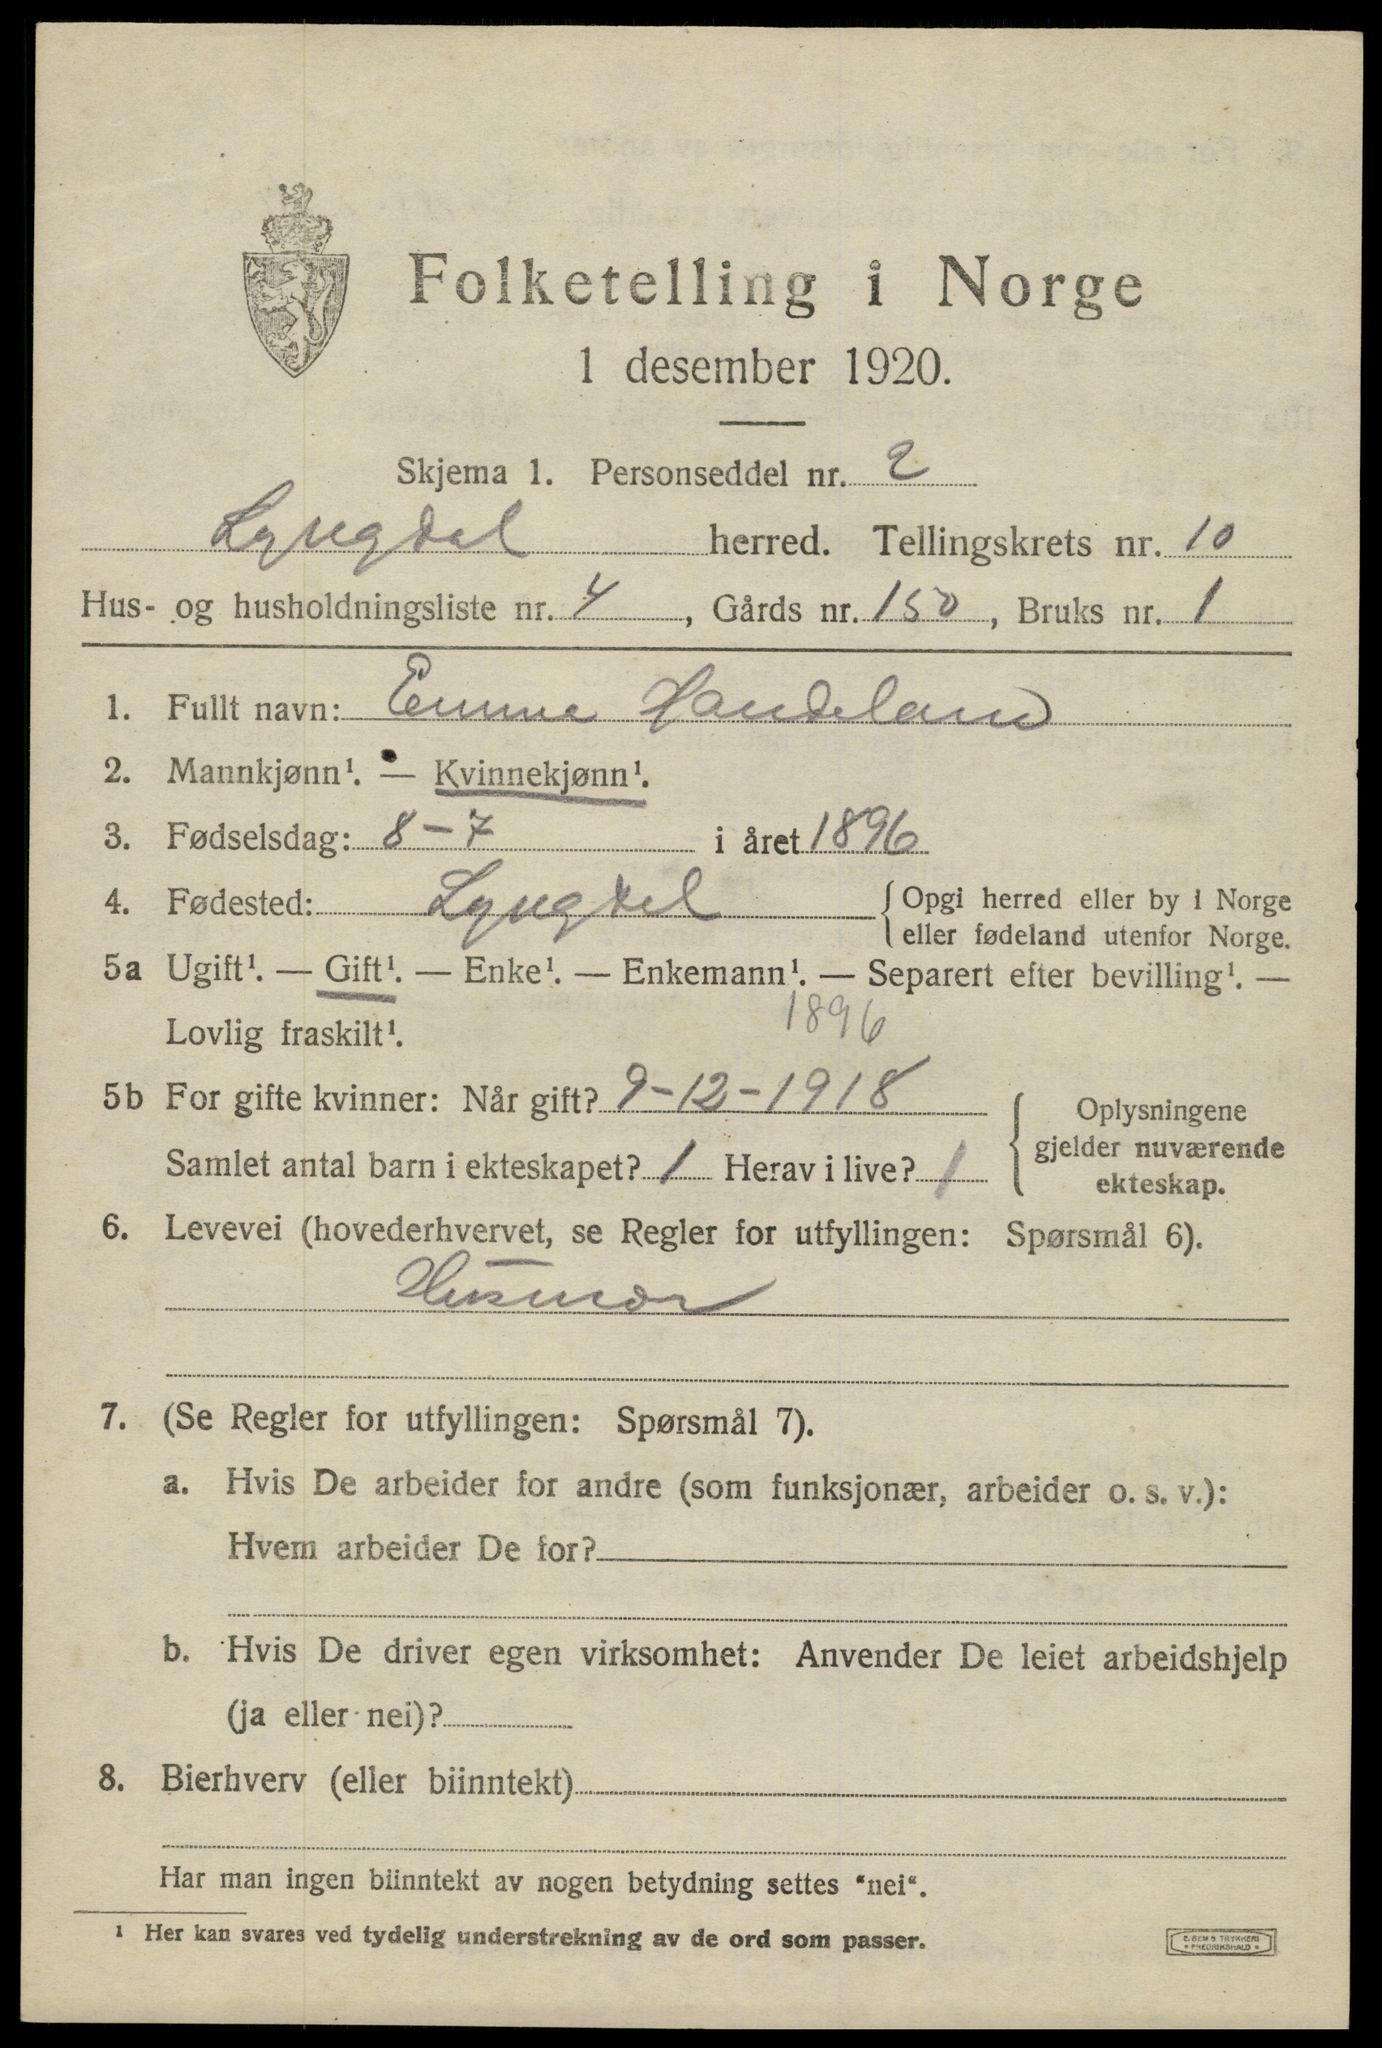 Folketelling i Norge
1 desember 1920.
Skjema 1. Personseddel nr. 2
Lyngdal herred. Tellingskrets nr. 10
Hus- og husholdningsliste nr. 4, Gårds nr. 150, Bruks nr. 1
1. Fullt navn: Emma Handeland
2. Mannkjønn¹. — Kvinnekjønn¹.
3. Fødselsdag: 8-7 i året 1896
4. Fødested: Lyngdal { Opgi herred eller by i Norge
eller fødeland utenfor Norge.
5a Ugift¹. — Gift¹. — Enke¹. — Enkemann¹. — Separert efter bevilling¹. —
Lovlig fraskilt¹. 1896
5b For gifte kvinner: Når gift? 9-12-1918
Samlet antal barn i ekteskapet? 1 Herav i live? 1
{ Oplysningene
gjelder nuværende
ekteskap.
6. Levevei (hovederhvervet, se Regler for utfyllingen: Spørsmål 6).
Husmor
7. (Se Regler for utfyllingen: Spørsmål 7).
a. Hvis De arbeider for andre (som funksjonær, arbeider o. s. v.):
Hvem arbeider De for?
b. Hvis De driver egen virksomhet: Anvender De leiet arbeidshjelp
(ja eller nei)?
8. Bierhverv (eller biinntekt)
Har man ingen biinntekt av nogen betydning settes "nei".
¹ Her kan svares ved tydelig understrekning av de ord som passer.
E. SEM'S TRYKKERI
* FREDRIKSHALD *